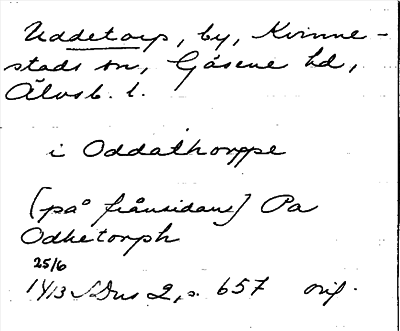 Uddetorp, by, Kvinne-
stads sn, Gäsene hd,
Älvsb. l.
i Oddathorppe
[på frånsidan] Pa
Odhetorph
25/6
1413 SDns 2, s. 657 orig.